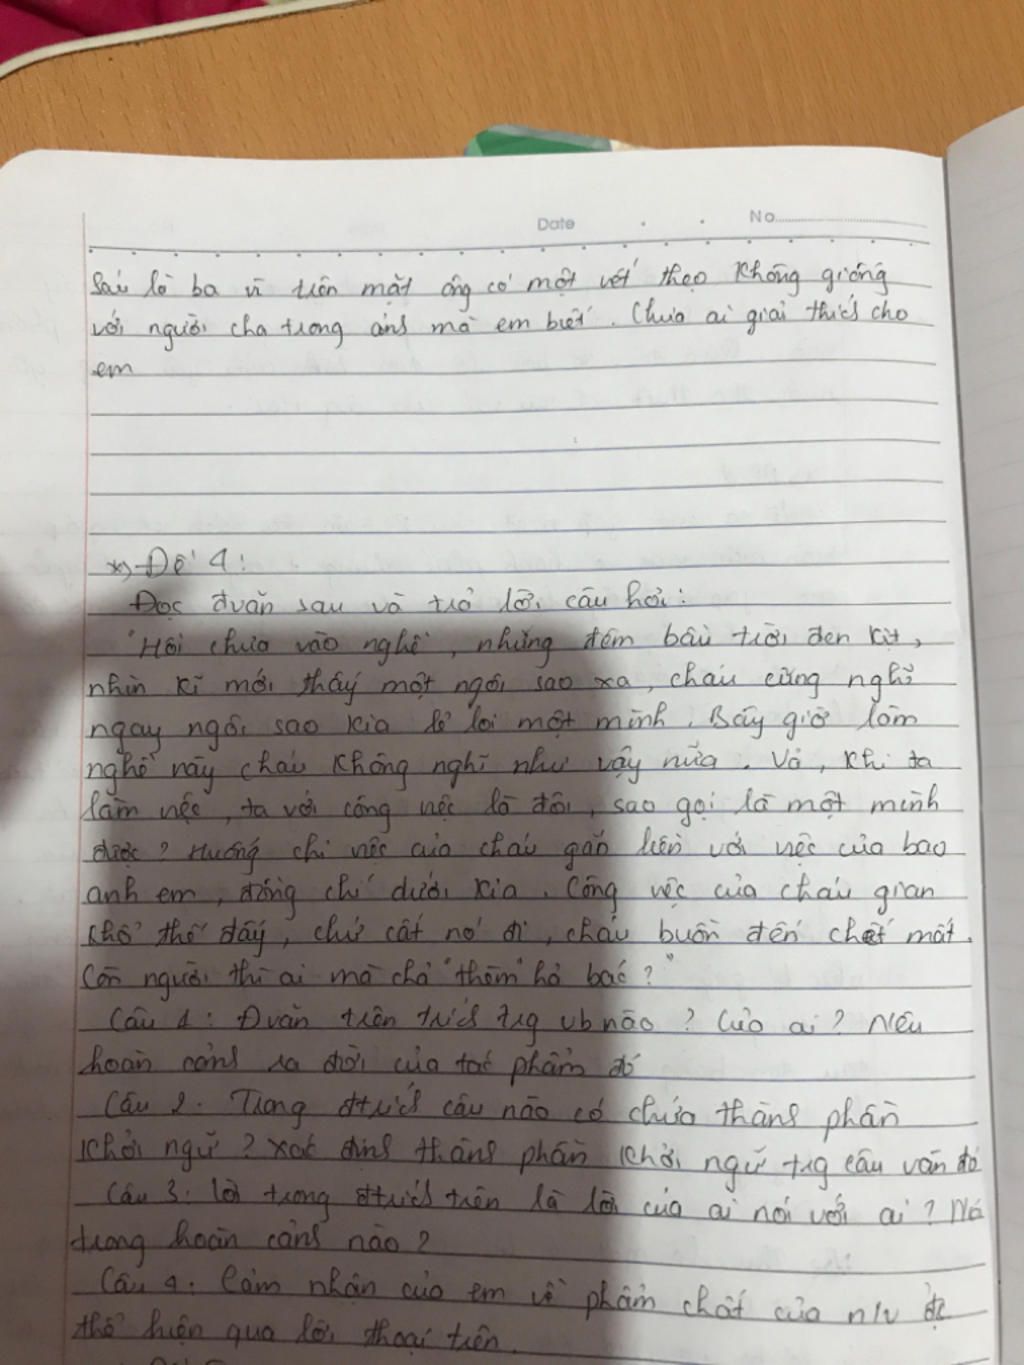 Date . . No.
Sáu là ba vì trên mặt ông có một vết thẹo không giống
với người cha trong ảnh mà em biết. Chưa ai giải thích cho
em
*) Đề 4:
Đọc đvăn sau và trả lời câu hỏi:
"Hồi chưa vào nghề, những đêm bầu trời đen kịt,
nhìn kĩ mới thấy một ngôi sao xa, cháu cũng nghĩ
ngay ngôi sao kia lẻ loi một mình. Bây giờ làm
nghề này cháu không nghĩ như vậy nữa. Vả, khi ta
làm việc, ta với công việc là đôi, sao gọi là một mình
được? Huống chi việc của cháu gắn liền với việc của bao
anh em, đồng chí dưới kia. Công việc của cháu gian
khổ thế đấy, chứ cất nó đi, cháu buồn đến chết mất.
Còn người thì ai mà chả "thèm" hả bác?"
Câu 1: Đvăn trên trích trg vb nào? Của ai? Nêu
hoàn cảnh ra đời của tác phẩm đó
Câu 2. Trong đtrích câu nào có chứa thành phần
khởi ngữ? Xác định thành phần khởi ngữ trg câu văn đó
Câu 3. Lời trong đtrích trên là lời của ai nói với ai? Nói
trong hoàn cảnh nào?
Câu 4. Cảm nhận của em về phẩm chất của n/v đc
thể hiện qua lời thoại trên.